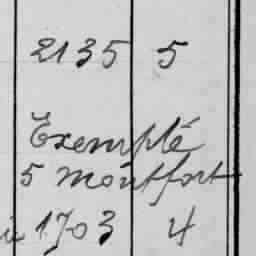 2135 5
Exempté
5 montfort
1703 4